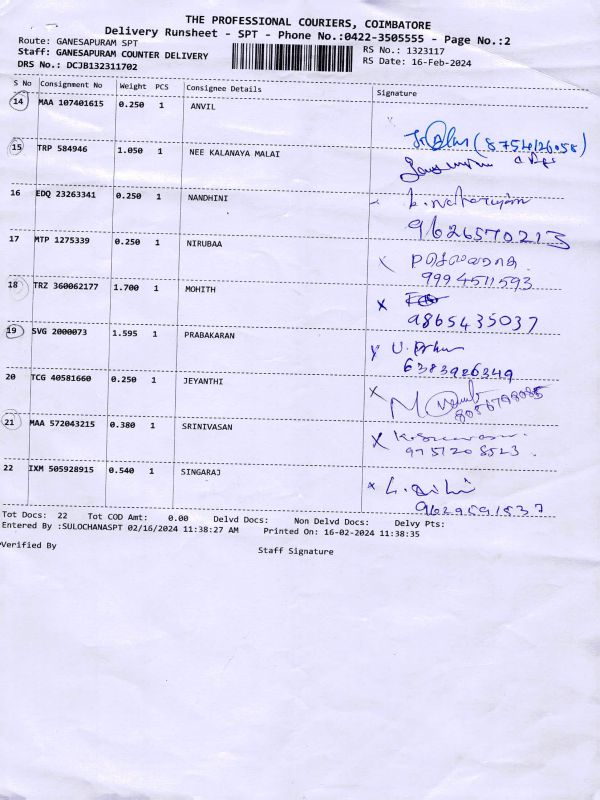 THE PROFESSIONAL COURIERS, COIMBATORE
Delivery Runsheet - SPT - Phone No.:0422-3505555 - Page No.:2
Route: GANESAPURAM SPT
RS No.: 1323117
Staff: GANESAPURAM COUNTER DELIVERY
RS Date: 16-Feb-2024
DRS No.: DCJB132311702
S No Consignment No Weight PCS Consignee Details Signature
14 MAA 107401615 0.250 1 ANVIL
(8754126058)
15 TRP 584946 1.050 1 NEE KALANAYA MALAI
16 EDQ 23263341 0.250 1 NANDHINI
9626570213
17 MTP 1275339 0.250 1 NIRUBAA
9994511593
18 TRZ 360062177 1.700 1 MOHITH
9865435037
19 SVG 2000073 1.595 1 PRABAKARAN
6383986349
20 TCG 40581660 0.250 1 JEYANTHI
8056798085
21 MAA 572043215 0.380 1 SRINIVASAN
9751208523
22 IXM 505928915 0.540 1 SINGARAJ
9629591537
Tot Docs: 22 Tot COD Amt: 0.00 Delvd Docs: Non Delvd Docs: Delvy Pts:
Entered By :SULOCHANASPT 02/16/2024 11:38:27 AM Printed On: 16-02-2024 11:38:35
Verified By
Staff Signature